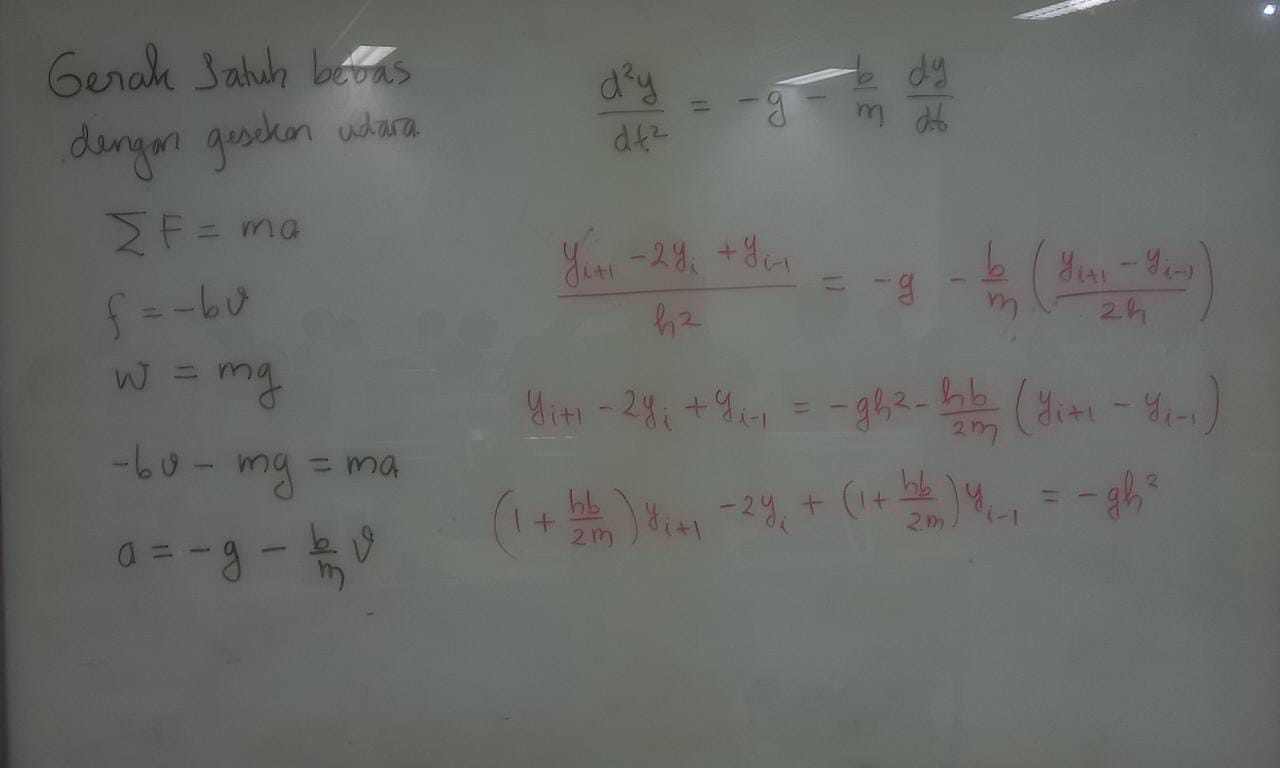 Gerak Jatuh bebas
dengan gesekan udara.
∑F = ma
f = -bv
w = mg
-bv - mg = ma
a = -g - b/m v
d²y/dt² = -g - b/m dy/dt
(y_{i+1} - 2y_i + y_{i-1})/h² = -g - b/m ((y_{i+1} - y_{i-1})/2h)
y_{i+1} - 2y_i + y_{i-1} = -gh² - hb/2m (y_{i+1} - y_{i-1})
(1 + hb/2m) y_{i+1} - 2y_i + (1 + hb/2m) y_{i-1} = -gh²